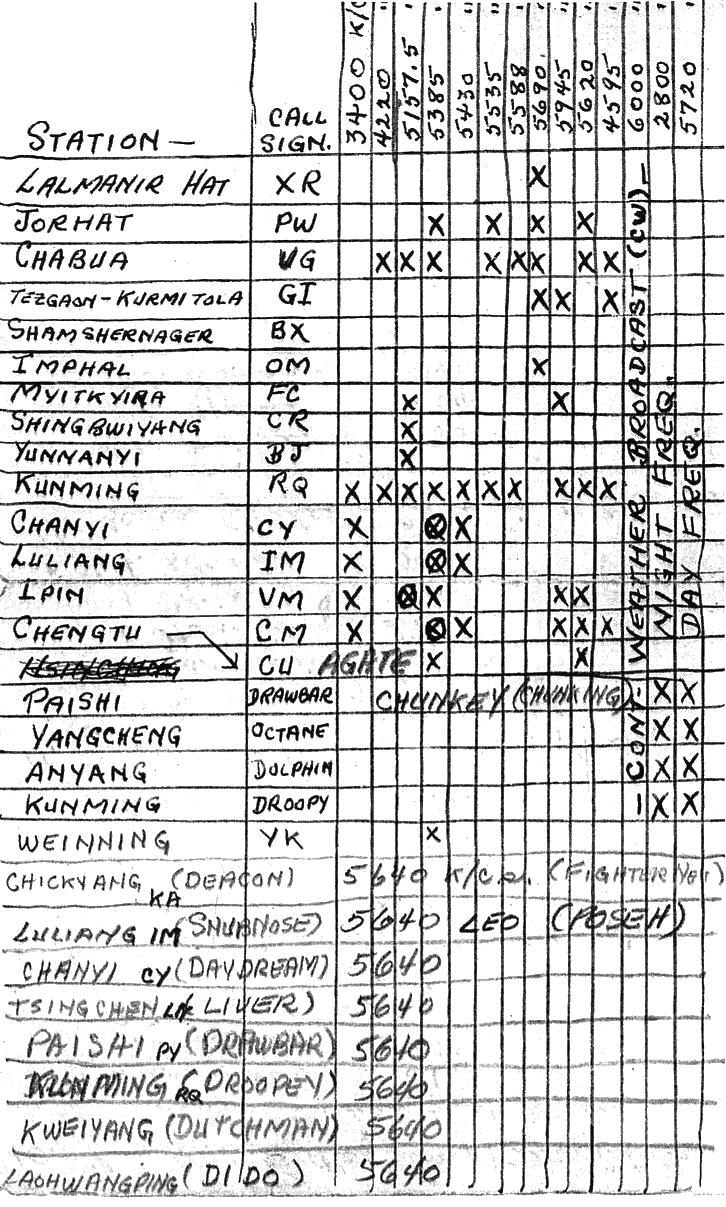 STATION — CALL SIGN. 3400 K/C 4220 " 5157.5 " 5385 " 5430 " 5535 " 5588 " 5690 " 5945 " 5620 " 4595 " 6000 " 2800 " 5720 "
LALMANIR HAT XR X
JORHAT PW X X X X
CHABUA VG X X X X X X X X
TEZGAON-KURMITOLA GI X X X
SHAMSHERNAGER BX
IMPHAL OM X
MYITKYIRA FC X X
SHINGBWIYANG CR X
YUNNANYI BJ X
KUNMING RQ X X X X X X X X X X
CHANYI CY X ⊗ X
LULIANG IM X ⊗ X
IPIN VM X ⊗ X X X
CHENGTU CM X ⊗ X X X X
CU AGATE X X
PAISHI DRAWBAR CHUNKEY (CHUNKING) X X
YANGCHENG OCTANE X X
ANYANG DOLPHIN X X
KUNMING DROOPY X X
WEINNING YK X
— CONT — WEATHER BROADCAST (CW) —
NIGHT FREQ.
DAY FREQ.
CHICKYANG KA (DEACON) 5640 K/C (FIGHTER NET)
LULIANG IM (SNUBNOSE) 5640 LEO (POSEH)
CHANYI CY (DAYDREAM) 5640
TSINGCHEN LIVER) 5640
PAISHI PY (DRAWBAR) 5640
KUNMING RQ (DROOPEY) 5640
KWEIYANG (DUTCHMAN) 5640
LAOHWANGPING (DIDO) 5640